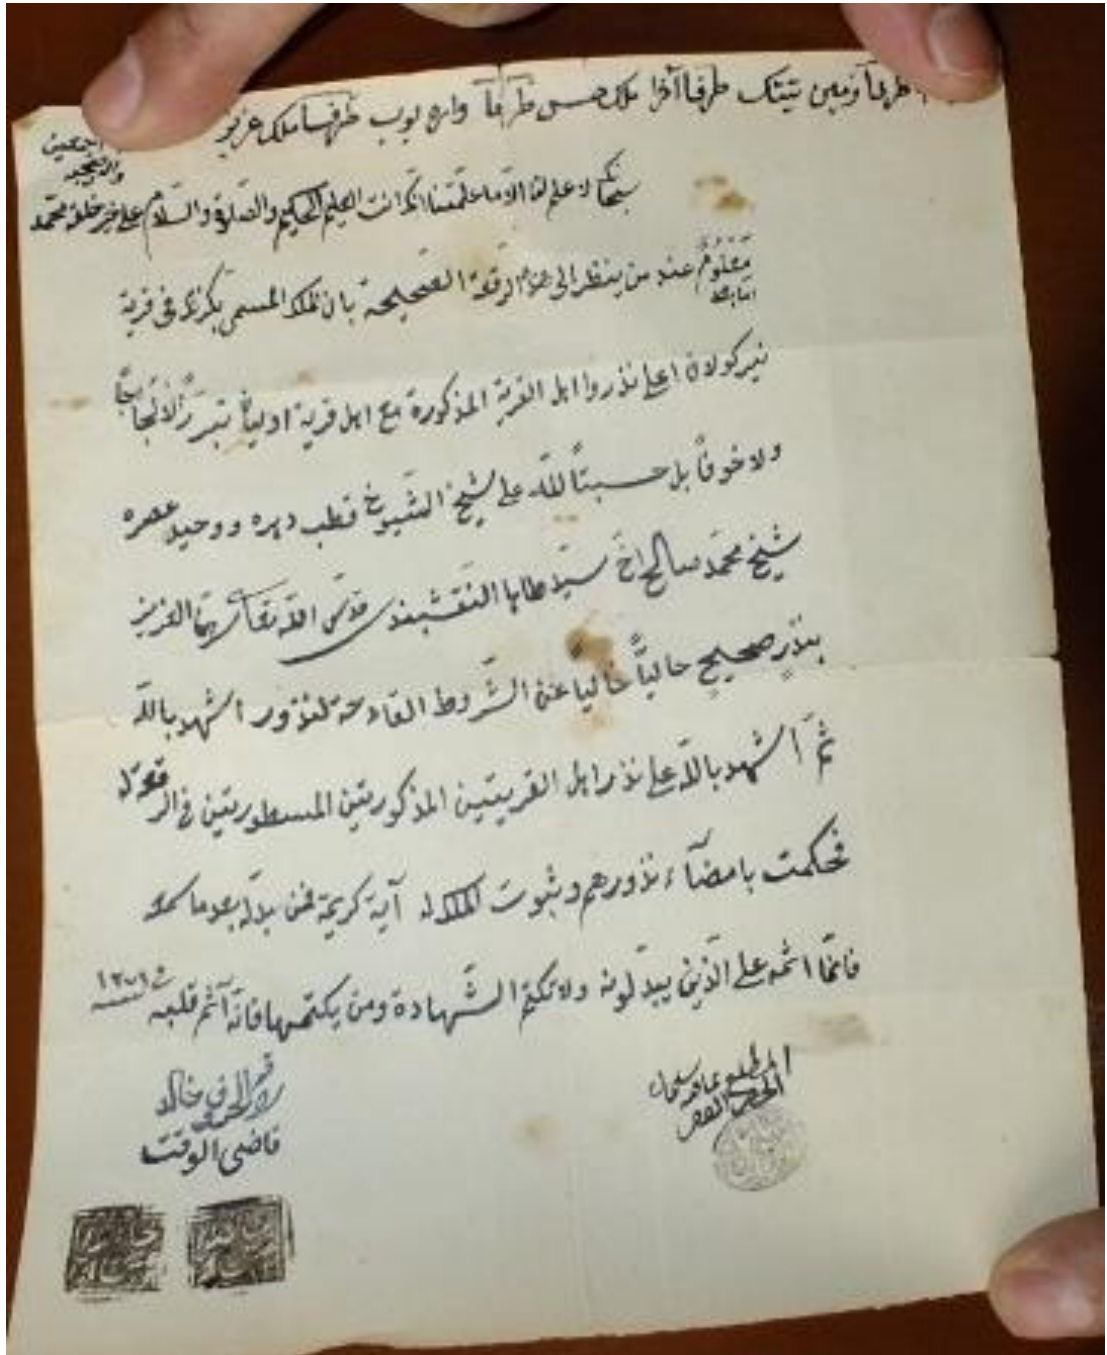 طرفاً زمين تيتك طرفاً آخرا ملك حسن طرفاً واره يوب طرفها ملك عزيز
سبحانك لا علم لنا الا ما علمتنا انك انت العليم الحكيم والصلوة والسلام على خير خلقه محمد
وآله وصحبه اجمعين
اما بعد
معلومٌ عند من ينظر الى هذه الرقعة الصحيحة بان ملك المسمى في قرية
اعلى نذروا اهل القرية المذكورة مع اهل قرية تبررًا لا لجاجًا
ولا خوفاً بل حسبتاً لله على شيخ الشيوخ قطب دهره ووحيد عصره
شيخ محمد صالح اخ سيد طاها النقشبندى قدس الله تعالى سرهما العزيز
بنذرٍ صحيحٍ حالياً خالياً عن الشروط القادحة لنذور اشهد بالله
ثم اشهد بالله على نذر اهل القريتين المذكوريتين المسطوريتين فى الرقعة
فحكمت بامضآء نذورهم وثبوت الملك له آية كريمة فمن بدله بعد ما سمعه
فانما اثمه على الذين يبدلونه ولا تكتم الشهادة ومن يكتمها فانه آثم قلبه
المطلع بما فيه سليمان
الحقير الفقير
رقم الحروف خالد
قاضى الوقت